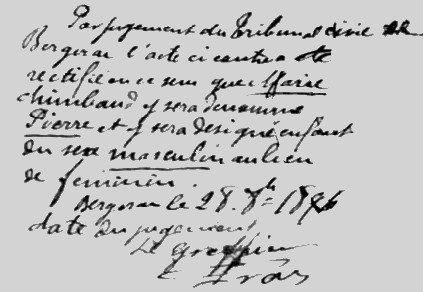 Par jugement du Tribunal civil de
Bergerac l'acte ci contre a été
rectifié en ce sens que
chimbaud y sera dénommé
Pierre et y sera designé enfant
du sexe masculin au lieu
de feminin.
Bergerac le 28. 8bre 1896
date du jugement
Le Greffier